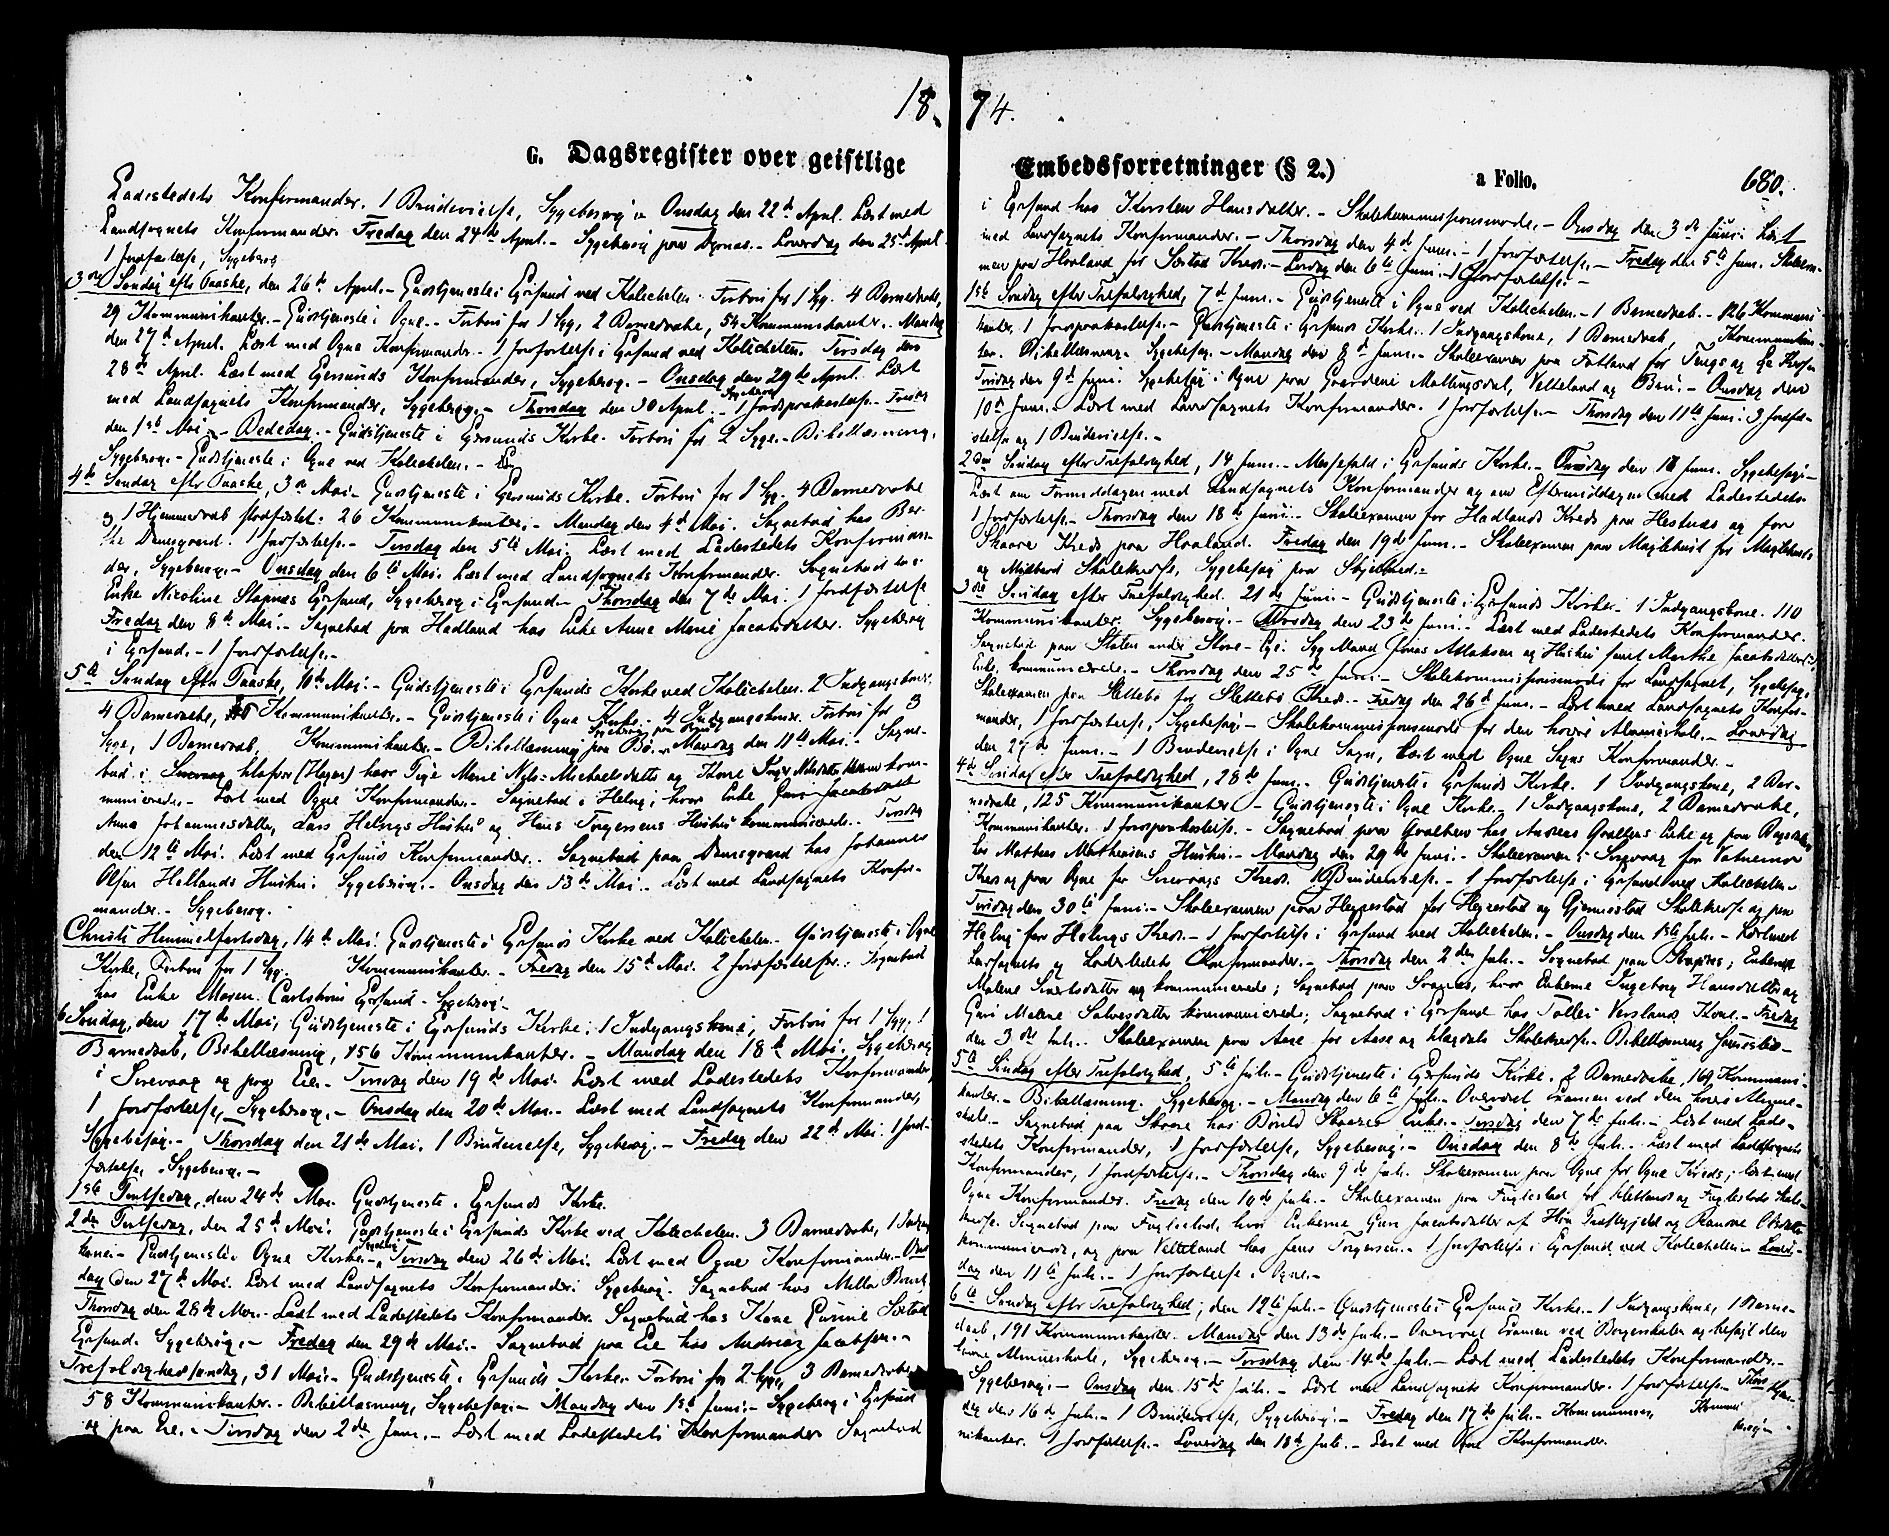 18
74.
G. Dagsregister over geistlige
Embedsforretninger (§ 2.)
a Folio.
680.
Ladestedets Konfirmander. 1 Brudevielse, Sygebesøg. Onsdag den 22de April. Læst med
Landsognets Konfirmander. Fredag den 24de April. - Sygebesøg paa - Løverdag den 25de April
1 Jordfæstelse, Sygebesøg
3die Søndag efter Paaske, den 26de April. - Gudstjeneste i Egersund ved Kolichelen. Forbøn for 1 Syg. 4 Barnedaab,
29 Kommunikanter. - Gudstjeneste i Ogne. - Forbøn for 1 Syg, 2 Barnedaab, 54 Kommunikanter. - Mandag
den 27de April. Læst med Ogne Konfirmander. - 1 Jordfæstelse i Egersund ved Kolichelen. Tirsdag den
28de April. Læst med Egersunds Konfirmander, Sygebesøg. - Onsdag den 29de April. Læst
med Landsognets Konfirmander, Sygebesøg. - Thorsdag den 30 April. - 1 Jordpaakastelse. - Fredag
den 1ste Mai - Bededag. - Gudstjeneste i Egersunds Kirke. Forbøn for 2 Syge. - Bibellæsning.
Sygebesøg. - Gudstjeneste i Ogne ved Kolichelen. -
4de Søndag efter Paaske, 3die Mai - Gudstjeneste i Egersunds Kirke. Forbøn for 1 Syg. 4 Barnedaab
og 1 Hjemmedaab stadfæstet. 26 Kommunikanter. - Mandag den 4de Mai. Sognebud hos
1 Jordfæstelse. - Tirsdag den 5te Mai. Læst med Ladestedets Konfirman-
der, Sygebesøg. - Onsdag den 6te Mai. Læst med Landsognets Konfirmander. Sognebud hos
Enke Nicoline Stapnes Egersund, Sygebesøg i Egersund - Thorsdag den 7de Mai. 1 Jordfæstelse
Fredag den 8de Mai. - Sognebud paa Hadland hos Enke Anne Marie Jacobsdatter. Sygebesøg
i Egersund. - 1 Jordfæstelse. -
5te Søndag efter Paaske, 10de Mai. - Gudstjeneste i Egersunds Kirke ved Kolichelen. 2 Indgangskoner
4 Barnedaab, Kommunikanter. - Gudstjeneste i Ogne Kirke. 4 Indgangskoner. Forbøn for 3
Syge, 1 Barnedaab, Kommunikanter. - Bibellæsning paa Bø. - Mandag den 11te Mai. Sogne-
bud i Sirevaag hos Pige Marie Michaelsdatter og Kone kom-
municerede. - Læst med Ogne Konfirmander. - Sognebud i Helvig, hvor Enke
Anna Johannesdatter, Lars Helvigs Hustru og Hans Torgersens Hustru kommunicerede. Tirsdag
den 12te Mai. Læst med Egersunds Konfirmander. - Sognebud paa hos Johannes
Olsen Hellands Hustru. Sygebesøg. - Onsdag den 13de Mai - Læst med Landsognets Konfir-
mander. - Sygebesøg.
Christi Himmelfartsdag, 14de Mai. Gudstjeneste i Egersunds Kirke ved Kolichelen. Gudstjeneste i Ogne
Kirke, Forbøn for 1 Syg. Kommunikanter. - Fredag den 15de Mai. 2 Jordfæstelser. Sognebud
hos Enke Maren Carlstrøm Egersund - Sygebesøg -
6 Søndag, den 17de Mai, Gudstjeneste i Egersunds Kirke, 1 Indgangskone, Forbøn for 1 Syg, 1
Barnedaab, Bibellæsning, 156 Kommunikanter. - Mandag den 18de Mai. Sygebesøg
i Sirevaag og paa Eie. - Tirsdag den 19de Mai. Læst med Ladestedets Konfirmander,
1 Jordfæstelse, Sygebesøg. - Onsdag den 20de Mai. - Læst med Landsognets Konfirmander,
Sygebesøg. - Thorsdag den 21de Mai. 1 Brudevielse, Sygebesøg. - Fredag den 22de Mai. 1 Jord-
fæstelse, Sygebesøg. -
1ste Pintsedag, den 24de Mai. Gudstjeneste i Egersunds Kirke.
2den Pintsedag, den 25de Mai. Gudstjeneste i Egersunds Kirke ved Kolichelen. 3 Barnedaab, 1 Indgangs
kone. - Gudstjeneste i Ogne Kirke. - Tirsdag den 26de Mai. Læst med Ogne Konfirmander. - Ons
dag den 27de Mai. Læst med Landsognets Konfirmander. Sygebesøg. Sognebud hos
Thorsdag den 28de Mai. - Læst med Ladestedets Konfirmander. Sognebud hos Kone
Egersund. Sygebesøg. - Fredag den 29de Mai. - Sognebud paa Eie hos Andreas Jacobsen. -
Trefoldighedssøndag, 31 Mai. - Gudstjeneste i Egersunds Kirke. Forbøn for 2 Syge, 3 Barnedaab
58 Kommunikanter. - Bibellæsning, Sygebesøg. - Mandag den 1ste Juni. - Sygebesøg i Egersund
og paa Eie. - Tirsdag den 2de Juni. - Læst med Ladestedets Konfirmander Sognebud
i Egersund hos Kirsten Hansdatter. - Skolekommissionsmøde. - Onsdag den 3die Juni. Læst
med Landsognets Konfirmander. - Thorsdag den 4de Juni. - 1 Jordfæstelse. - Fredag den 5te Juni. Skoleexa-
men paa Hovland for Sæstad Kreds. - Lørdag den 6te Juni. 1 Jordfæstelse. -
1ste Søndag efter Trefoldighed, 7de Juni. - Gudstjeneste i Ogne ved Kolichelen. - 1 Barnedaab. - 126 Kommuni-
kanter. 1 Jordpaakastelse. - Gudstjeneste i Egersunds Kirke. 1 Indgangskone, 1 Barnedaab, Kommunikan-
ter. Bibellæsning. Sygebesøg. - Mandag den 8de Juni. - Skoleexamen paa
Tirsdag den 9de Juni. Sygebesøg i Ogne paa Gaardene Mattingsdal, Vetteland og - Onsdag den
10de Juni. - Læst med Landsognets Konfirmander. 1 Jordfæstelse. - Thorsdag den 11te Juni. 3 Jordfæ-
stelser og 1 Brudevielse. -
2den Søndag efter Trefoldighed, 14 Juni. - Messefald i Egersunds Kirke. - Sygebesøg. -
Læst om Formiddagen med Landsognets Konfirmander og om Eftermiddagen med Ladestedets.
1 Jordfæstelse. - Thorsdag den 18de Juni. - Skoleexamen for Hadlands Kreds paa Hestnes og for
Skaare Kreds paa Hovland. Fredag den 19de Juni. - Skoleexamen paa
og Skolekredse, Sygebesøg paa
3die Søndag efter Trefoldighed. 21de Juni. - Gudstjeneste i Egersunds Kirke. - 1 Indgangskone. 110
Kommunikanter. Sygebesøg. - Tirsdag den 23de Juni. - Læst med Ladestedets Konfirmander.
Sognebud paa Slaten under Store-Eie. Syg Mand Jonas Aslaksen og Hustru samt Marthe Jacobsdatter,
Enke, kommunicerede. - Thorsdag den 25de Juni. - Skolekommissionsmøde for Landsognet, Sygebesøg.
Skoleexamen paa Slettebø for Slettebø Kreds. - Fredag den 26de Juni. - Læst med Landsognets Konfir-
mander, 1 Jordfæstelse, Sygebesøg. - Skolekommissionsmøde for den høiere Almueskole. - Løverdag
den 27de Juni. - 1 Brudevielse i Ogne Sogn, Læst med Ogne Sogns Konfirmander. -
4de Søndag efter Trefoldighed, 28de Juni. - Gudstjeneste i Egersunds Kirke. 1 Indgangskone, 2 Bar-
nedaab, 125 Kommunikanter. - Gudstjeneste i Ogne Kirke. - 1 Indgangskone, 2 Barnedaab,
Kommunikanter. 1 Jordpaakastelse. - Sognebud paa hos Andreas Enke og paa
hos Mathias Mathiasens Hustru. - Mandag den 29de Juni. - Skoleexamen i Sirevaag for
Kreds og paa Ogne for Sirevaags Kreds. Brudevielse. - 1 Jordfæstelse i Egersund ved Kolichelen. -
Tirsdag den 30te Juni. - Skoleexamen paa Heggestad for Heggestad og Gjermestad Skolekredse og paa
Helvig for Helvigs Kreds. - 1 Jordfæstelse i Egersund ved Kolichelen. - Onsdag den 1ste Juli. - Læst med
Landsognets og Ladestedets Konfirmander. - Thorsdag den 2den Juli. - Sognebud paa Stapnes; Enken
Malene Sivertsdatter kommunicerede; Sognebud paa Svanes, hvor Enkerne Ingeborg Hansdatter og
Guri Malene Salvesdatter kommunicerede; Sognebud i Egersund hos Tollei Verslands Kone. - Fredag
den 3die Juli. - Skoleexamen paa Aase for Aase og Skolekredse. - Bibellæsning
5te Søndag efter Trefoldighed, 5te Juli. - Gudstjeneste i Egersunds Kirke. 2 Barnedaab, 169 Kommuni-
kanter. - Bibellæsning. Sygebesøg. - Mandag den 6te Juli. - Overværet Examen ved den høiere Almue-
skole. - Sognebud paa Skaare hos Skaares Enke. - Tirsdag den 7de Juli. - Læst med Lade-
stedets Konfirmander, 1 Jordfæstelse, Sygebesøg. - Onsdag den 8de Juli. - Læst med Landsognets
Konfirmander, 1 Jordfæstelse. - Thorsdag den 9de Juli. Skoleexamen paa Ogne for Ogne Kreds; læst med
Ogne Konfirmander. Fredag den 10de Juli. - Skoleexamen paa Fuglestad for Hetlands og Fuglestads Skole-
kredse. Sognebud paa Fuglestad, hvor Enkerne Guri Jacobsdatter og
kommunicerede, og paa Vetteland hos Jens Torgersen. - 1 Jordfæstelse i Egersund ved Kolichelen. - Løver-
dag den 11te Juli. - 1 Jordfæstelse i Ogne. -
6te Søndag efter Trefoldighed, den 12te Juli. - Gudstjeneste i Egersunds Kirke. - 1 Indgangskone, 1 Barne-
daab, 191 Kommunikanter. Mandag den 13de Juli. - Overværet Examen ved Borgerskolen og den
høiere Almueskole, Sygebesøg. - Tirsdag den 14de Juli. - Læst med Ladestedets Konfirmander. -
Sygebesøg. - Onsdag den 15de Juli. - Læst med Landsognets Konfirmander. 1 Jordfæstelse. - Thors
dag den 16de Juli. - 1 Brudevielse, Sygebesøg. - Fredag den 17de Juli. - Kommunion, Kommu
nikanter. 1 Jordfæstelse. - Løverdag den 18de Juli. - Læst med Ogne Konfirmander.